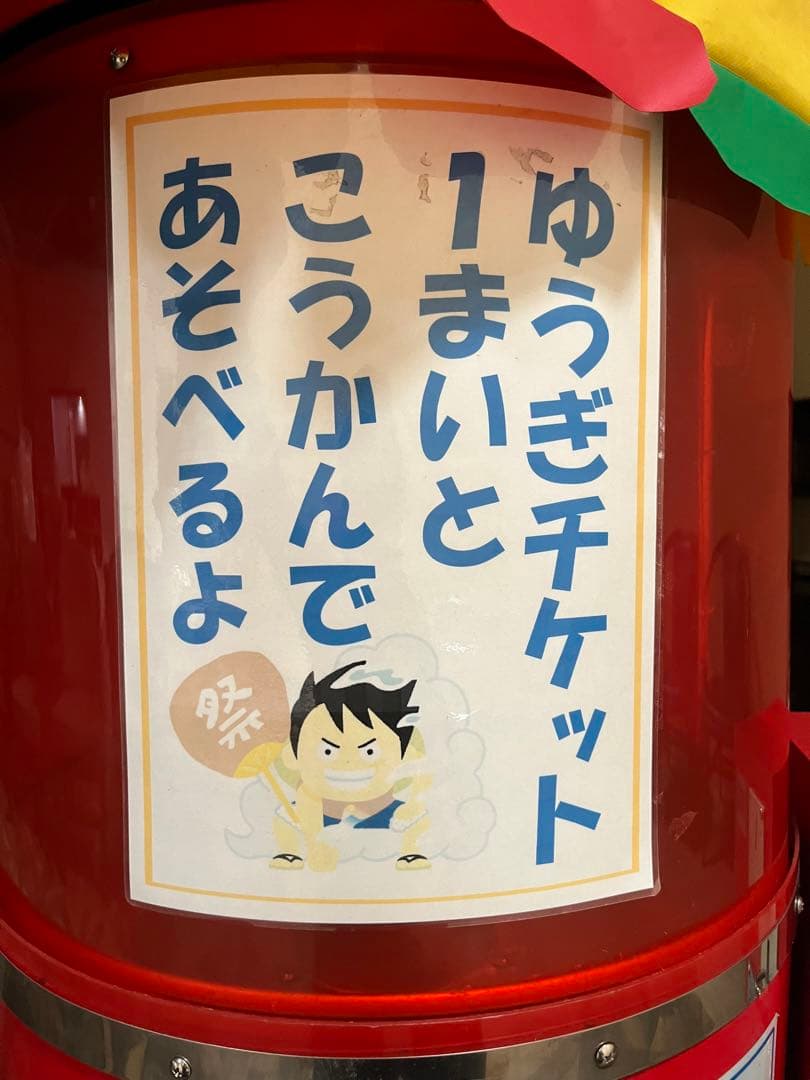 ゆうぎチケット
1まいと
こうかんで
あそべるよ
祭